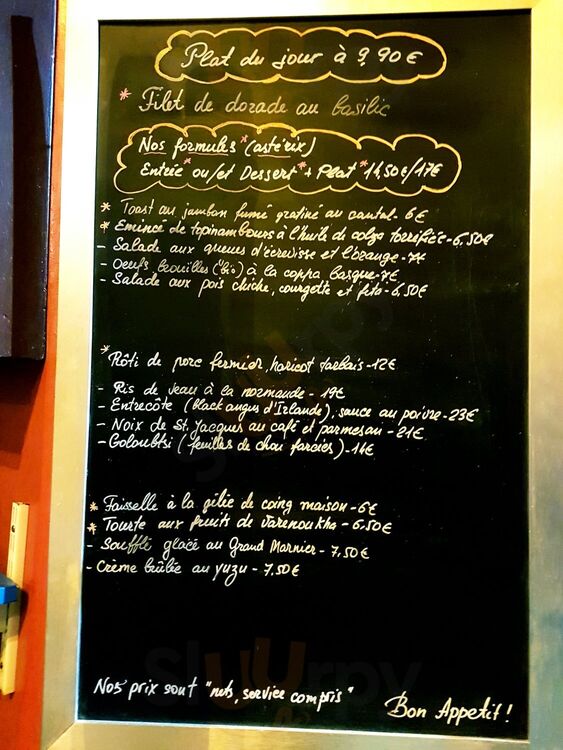 Plat du jour à 9,90€
* Filet de dorade au basilic
Nos formules* (astérix)
Entrée* ou/et Dessert* + Plat* 14,50€/17€
* Toast au jambon fumé gratiné au cantal - 6€
* Emincé de topinambours à l'huile de colza torréfiée - 6,50€
- Salade aux queues d'écrevisse et l'orange - 7€
- Oeufs brouillés (bio) à la coppa basque - 7€
- Salade aux pois chiche, courgette et féta - 6,50€
* Rôti de porc fermier, haricot tarbais - 12€
- Ris de veau à la normande - 19€
- Entrecôte (black angus d'Irlande), sauce au poivre - 23€
- Noix de St. Jacques au café et parmesan - 21€
- Goloubtsi (feuilles de chou farcies) - 14€
* Faisselle à la gelée de coing maison - 6€
* Tourte aux fruits de Varenoukha - 6.50€
- Soufflé glacé au Grand Marnier - 7,50€
- Crème brûlée au yuzu - 7,50€
Nos prix sont "nets, service compris"
Bon Appetit!
Sluurpy